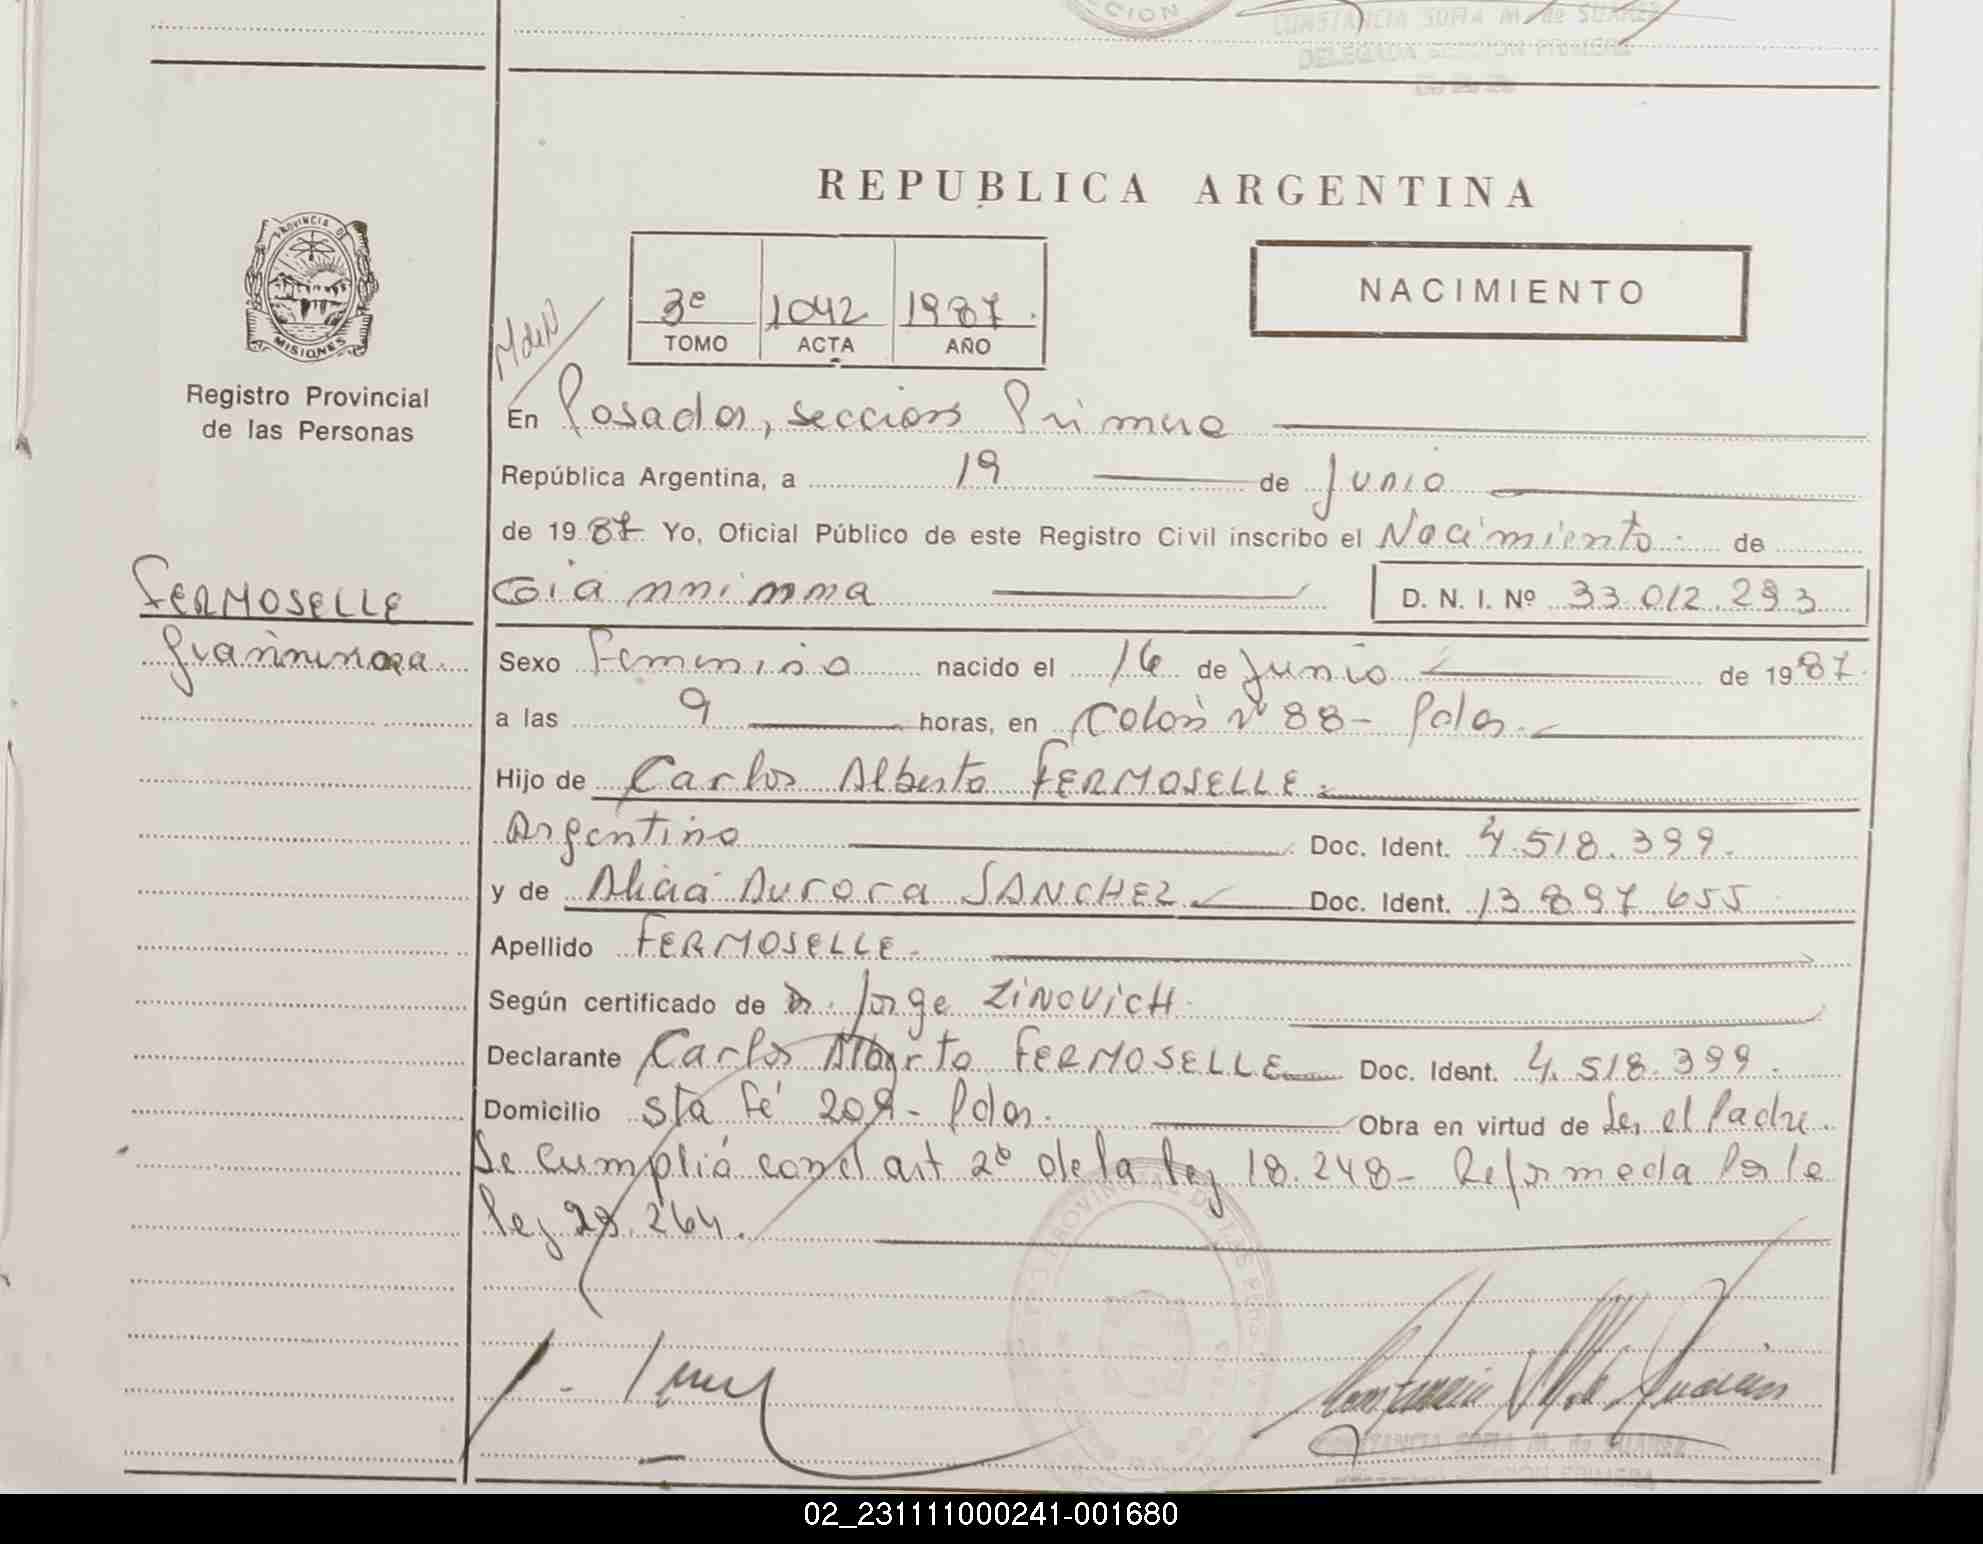 CCION
CONSTANCIA SOFIA M. de SUAREZ
DELEGADA SECCION PRIMERA
REPUBLICA ARGENTINA
PROVINCIA DE
MISIONES
Registro Provincial
de las Personas
3º 1042 1987.
TOMO ACTA AÑO
NACIMIENTO
MdeN
En Posadas, sección Primera
República Argentina, a 19 de Junio
de 1987. Yo, Oficial Público de este Registro Civil inscribo el Nacimiento de
Gianninna D. N. I. Nº 33.012.293
FERMOSELLE
Gianninna
Sexo Femenino nacido el 16 de Junio de 1987.
a las 9 horas, en Colon Nº 88- Pdas.
Hijo de Carlos Alberto FERMOSELLE.
Argentino Doc. Ident. 4.518.399.
y de Alicia Aurora SANCHEZ Doc. Ident. 13.897.655
Apellido FERMOSELLE.
Según certificado de Dr. Jorge ZINOVICH.
Declarante Carlos Alberto FERMOSELLE Doc. Ident. 4.518.399.
Domicilio Sta Fé 209- Pdas. Obra en virtud de Ser el Padre.
Se cumplió con el art 2º de la ley 18.248- Reformada Por la
ley 23.264.
CONSTANCIA SOFIA M. de SUAREZ
02_231111000241-001680